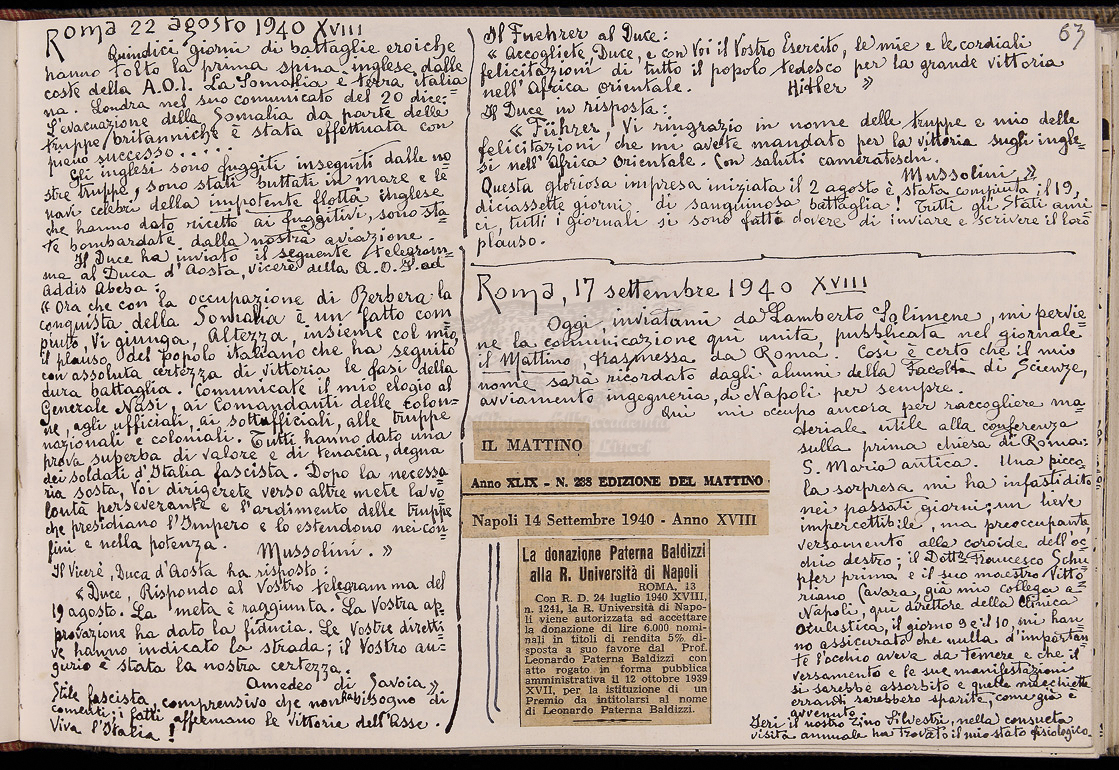 Roma 22 agosto 1940 XVIII
Quindici giorni di battaglie eroiche
hanno tolto la prima spina inglese dalle
coste della A.O.I. La Somalia è terra italia=
na. Londra nel suo comunicato del 20 dice:
L'evacuazione della Somalia da parte delle
truppe britanniche è stata effettuata con
pieno successo.....
Gli inglesi sono fuggiti inseguiti dalle no=
stre truppe, sono stati buttati in mare e le
navi celebri della impotente flotta inglese
che hanno dato ricetto ai fuggitivi, sono sta=
te bombardate dalla nostra aviazione.
Il Duce ha inviato il seguente telegram=
ma al Duca d'Aosta, vicerè della A.O.I. ad
Addis Abeba:
« Ora che con la occupazione di Berbera la
conquista della Somalia è un fatto com
piuto, Vi giunga, Altezza, insieme col mio,
il plauso del popolo italiano che ha seguito
con assoluta certezza di vittoria le fasi della
dura battaglia. Comunicate il mio elogio al
Generale Nasi, ai Comandanti delle colon=
ne, agli ufficiali, ai sottufficiali, alle truppe
nazionali e coloniali. Tutti hanno dato una
prova superba di valore e di tenacia, degna
dei soldati d'Italia fascista. Dopo la necessa=
ria sosta, Voi dirigerete verso altre mete la vo=
lontà perseverante e l'ardimento delle truppe
che presidiano l'Impero e lo estendono nei con=
fini e nella potenza.
Mussolini. »
Il Vicerè, Duca d'Aosta ha risposto:
« Duce, Rispondo al Vostro telegramma del
19 agosto. La meta è raggiunta. La Vostra ap=
provazione ha dato la fiducia. Le Vostre diretti=
ve hanno indicato la strada; il Vostro au=
gurio è stata la nostra certezza.
Amedeo di Savoia »
Stile fascista, comprensivo che non ha bisogno di
comenti; i fatti affermano le vittorie dell'Asse.
Viva l'Italia!
63
Il Fuehrer al Duce:
« Accogliete, Duce, e con Voi il Vostro Esercito, le mie e le cordiali
felicitazioni di tutto il popolo tedesco per la grande vittoria
nell'Africa orientale.
Hitler »
Il Duce in risposta:
« Führer, Vi ringrazio in nome delle truppe e mio delle
felicitazioni che mi avete mandato per la vittoria sugli ingle=
si nell'Africa Orientale. Con saluti camerateschi.
Mussolini »
Questa gloriosa impresa iniziata il 2 agosto è stata compiuta il 19,
diciassette giorni di sanguinosa battaglia! Tutti gli Stati ami=
ci, tutti i giornali si sono fatti dovere di inviare e scrivere il loro
plauso.
Roma, 17 settembre 1940 XVIII
Oggi, inviatami da Lamberto Sglimene, mi pervie=
ne la comunicazione qui unita, pubblicata nel giornale
il Mattino, trasmessa da Roma. Così è certo che il mio
nome sarà ricordato dagli alunni della Facoltà di Scienze,
avviamento ingegneria, di Napoli per sempre.
Qui mi occupo ancora per raccogliere ma=
teriale utile alla conferenza
sulla prima chiesa di Roma:
S. Maria antica. Una picco=
la sorpresa mi ha infastidito
nei passati giorni; un lieve
impercettibile, ma preoccupante,
versamento alla coroide dell'oc=
chio destro; il Dott. Francesco Schu=
pfer prima e il suo maestro Vitto=
riano Cavara, già mio collega a
Napoli, qui direttore della Clinica
Oculistica, il giorno 9 e il 10, mi han=
no assicurato che nulla d'importan=
te l'occhio aveva da temere e che il
versamento e le sue manifestazioni
si sarebbe assorbito e quelle macchiette
erranti sarebbero sparite, come già è
avvenuto.
Ieri il nostro Zino Silvestri, nella consueta
visita annuale ha trovato il mio stato fisiologico
IL MATTINO
Anno XLIX - N. 238 EDIZIONE DEL MATTINO
Napoli 14 Settembre 1940 - Anno XVIII
La donazione Paterna Baldizzi
alla R. Università di Napoli
ROMA, 13
Con R. D. 24 luglio 1940 XVIII,
n. 1241, la R. Università di Napo-
li viene autorizzata ad accettare
la donazione di lire 6.000 nomi-
nali in titoli di rendita 5% di-
sposta a suo favore dal Prof.
Leonardo Paterna Baldizzi con
atto rogato in forma pubblica
amministrativa il 12 ottobre 1939
XVII, per la istituzione di un
Premio da intitolarsi al nome
di Leonardo Paterna Baldizzi.